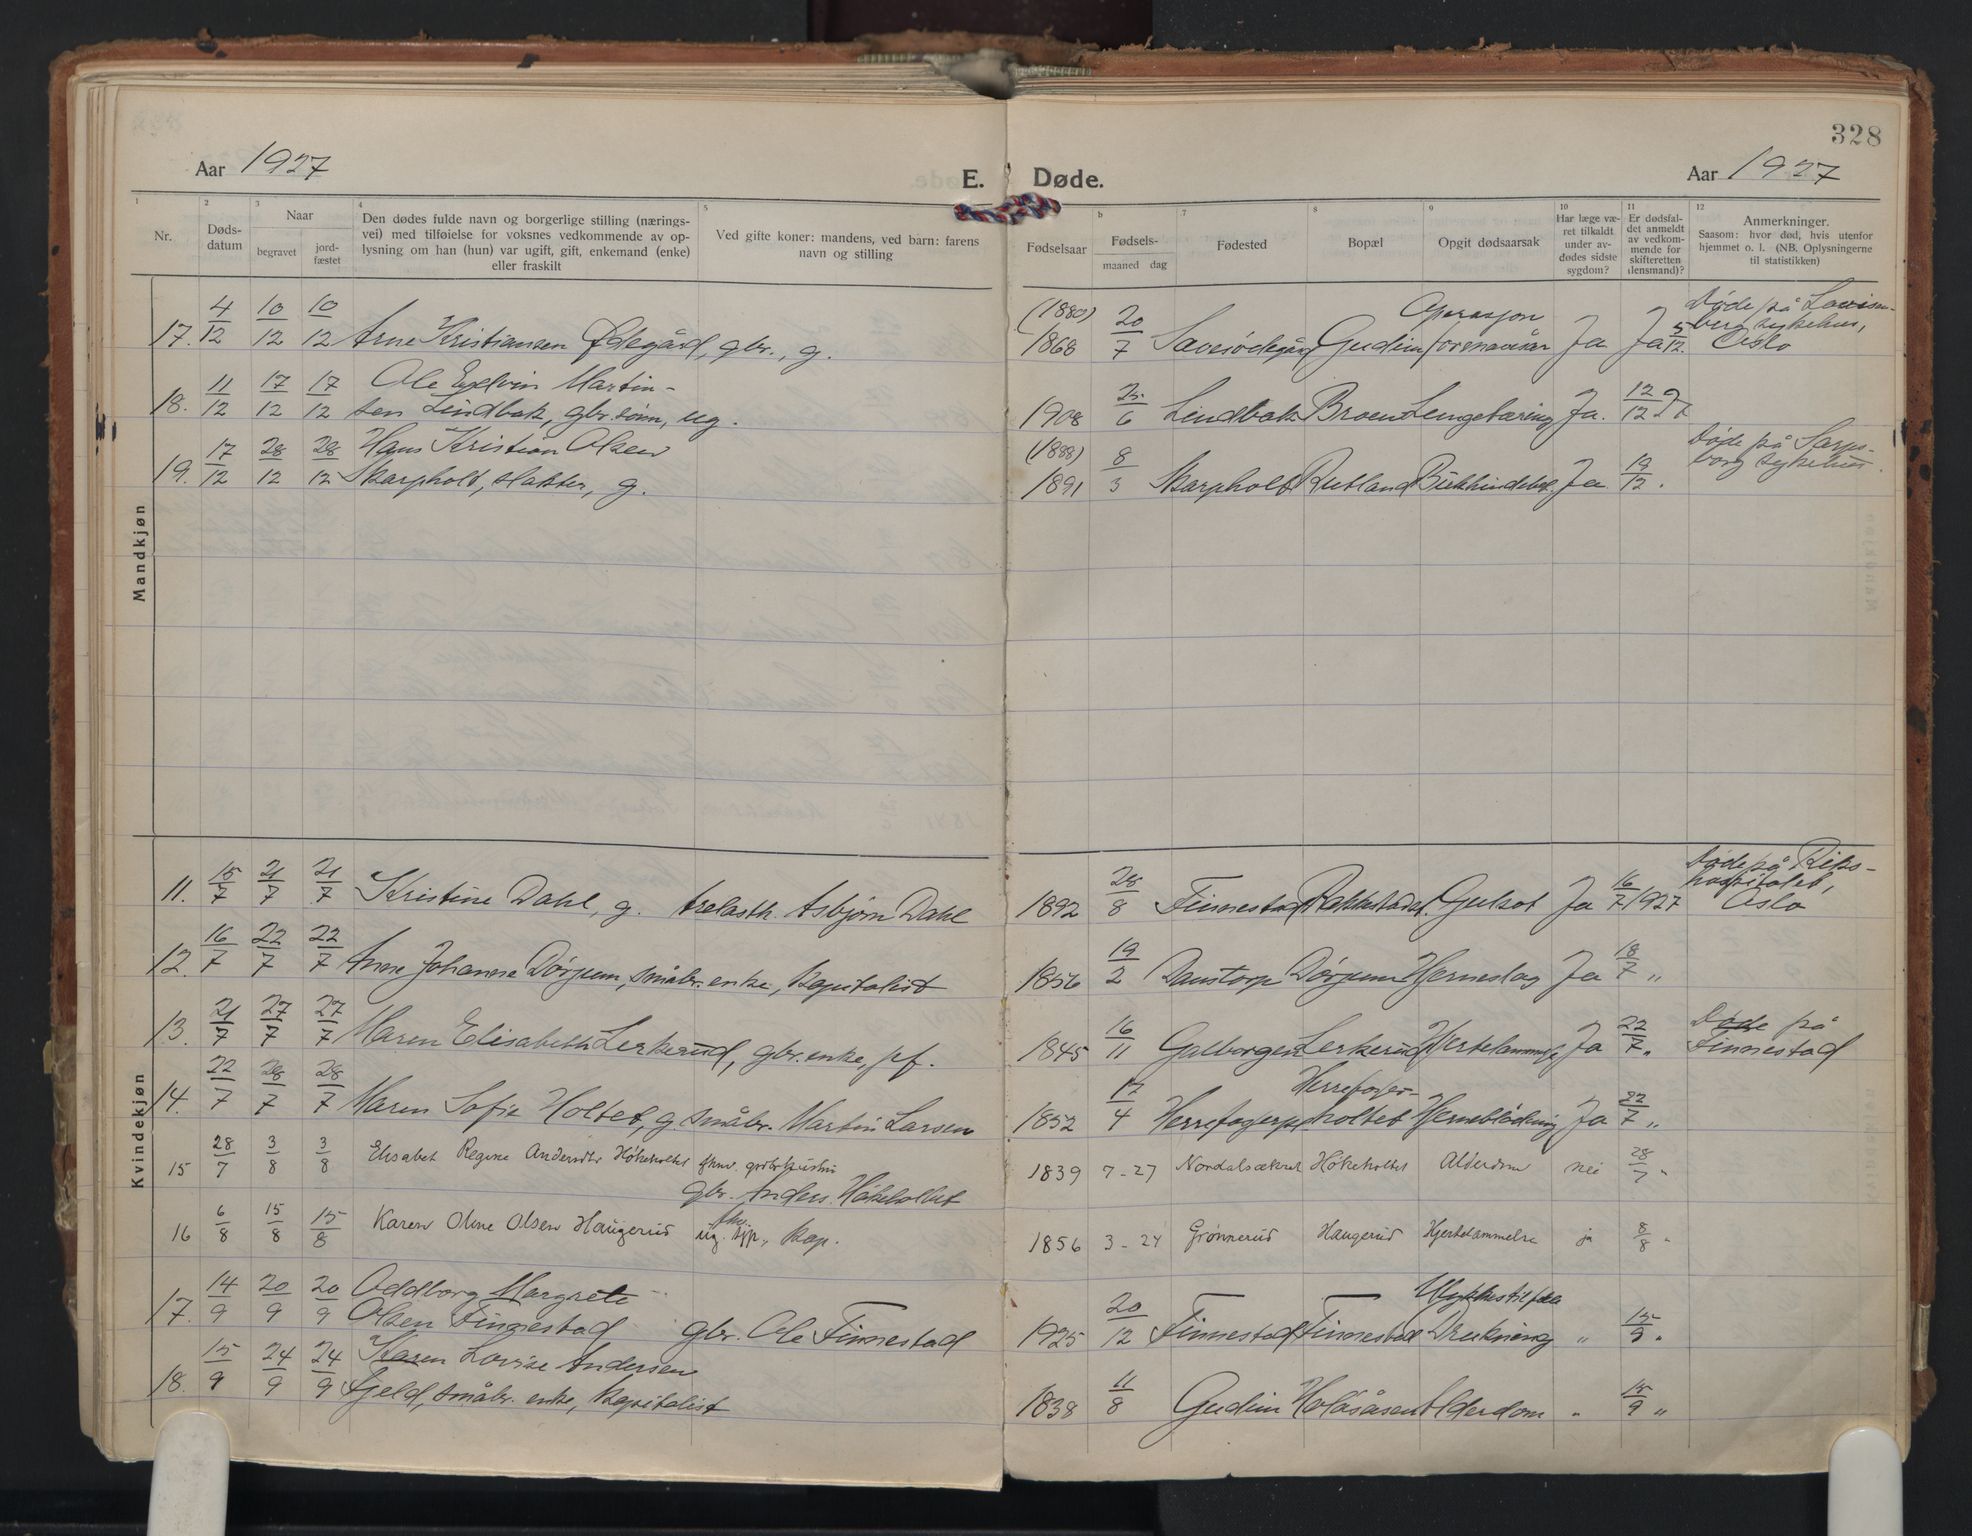 328
Aar 1927
E. Døde.
Aar 1927
1 2 3 4 5 b 7 8 9 10 11 12
Nr.
Døds-
datum
Naar
begravet
jord-
fæstet
Den dødes fulde navn og borgerlige stilling (nærings-
vei) med tilføielse for voksnes vedkommende av op-
lysning om han (hun) var ugift, gift, enkemand (enke)
eller fraskilt
Ved gifte koner: mandens, ved barn: farens
navn og stilling
Fødselsaar
Fødsels-
maaned dag
Fødested
Bopæl
Opgit dødsaarsak
Har læge væ-
ret tilkaldt
under av-
dødes sidste
sygdom?
Er dødsfal-
det anmeldt
av vedkom-
mende for
skifteretten
(lensmand)?
Anmerkninger.
Saasom: hvor død, hvis utenfor
hjemmet o. l. (NB. Oplysningerne
til statistikken)
Mandkjøn
17. 4/12 10/12 10/12 Arne Kristiansen Ødegård, gbr., g.
(1880) 1868 20/7 Gudim Operasjon Ja Ja 5/12. Døde på Lovisen-
berg sykehus,
Oslo
18. 11/12 17/12 17/12 Ole Martin-
sen Lindbak, gbr.sønn, ug.
1908 25/6 Lindbak Broen Lungetæring Ja. 12/12 27
19. 17/12 28/12 28/12 Hans Kristian Olsen
Skarpholt, slakter, g.
(1888) 1891 8/3 Skarpholt Rutland Ja 19/12. Døde på Sarps-
borg sykehus.
Kvindekjøn
11. 15/7 21/7 21/7 Kristine Dahl, g. trelasth. Asbjørn Dahl
1892 28/8 Finnestad Rakkestadst. Gulsot Ja 16/7 1927 Døde på Riks-
hospitalet,
Oslo
12. 16/7 22/7 22/7 Anne Johanne Dørjum, småbr. enke, kapitalist
1856 19/2 Danstorp Dørjum Hjerneslag Ja 18/7 „
13. 21/7 27/7 27/7 Maren Elisabeth Lerkerud, gbr. enke, pf.
1845 16/11 Galborgen Lerkerud Hjertelammelse Ja 22/7 „ Døde på
Finnestad
14. 22/7 28/7 28/7 Maren Sofie Holtet, g. småbr. Martin Larsen
1852 17/4 Herrefoger-
holtet Hjerneblødning Ja 22/7 „
15 28/7 3/8 3/8 Elisabet Regine Andersdtr Høkeholtet fhnv.
gbr. Anders Høkeholtet
1839 7-27 Nordalsækret Høkeholtet Alderdom nei 28/7 „
16 6/8 15/8 15/8 Karen Oline Olsen Haugerud ug. fhv. tjp., kap.
1856 3-24 Grønnerud Haugerud Hjertelammelse ja 8/8 „
17. 14/9 20/9 20/9 Oddborg Margrete
Olsen Finnestad gbr. Ole Finnestad
1925 20/12 Finnestad Finnestad Ulykkestilfelle
Drukning „ 15/9 „
18. 15/9 24/9 24/9 Karen Lovise Andersen
Fjeld, småbr. enke, kapitalist
1838 11/8 Gudim Holøsåsen Alderdom „ 15/9 „